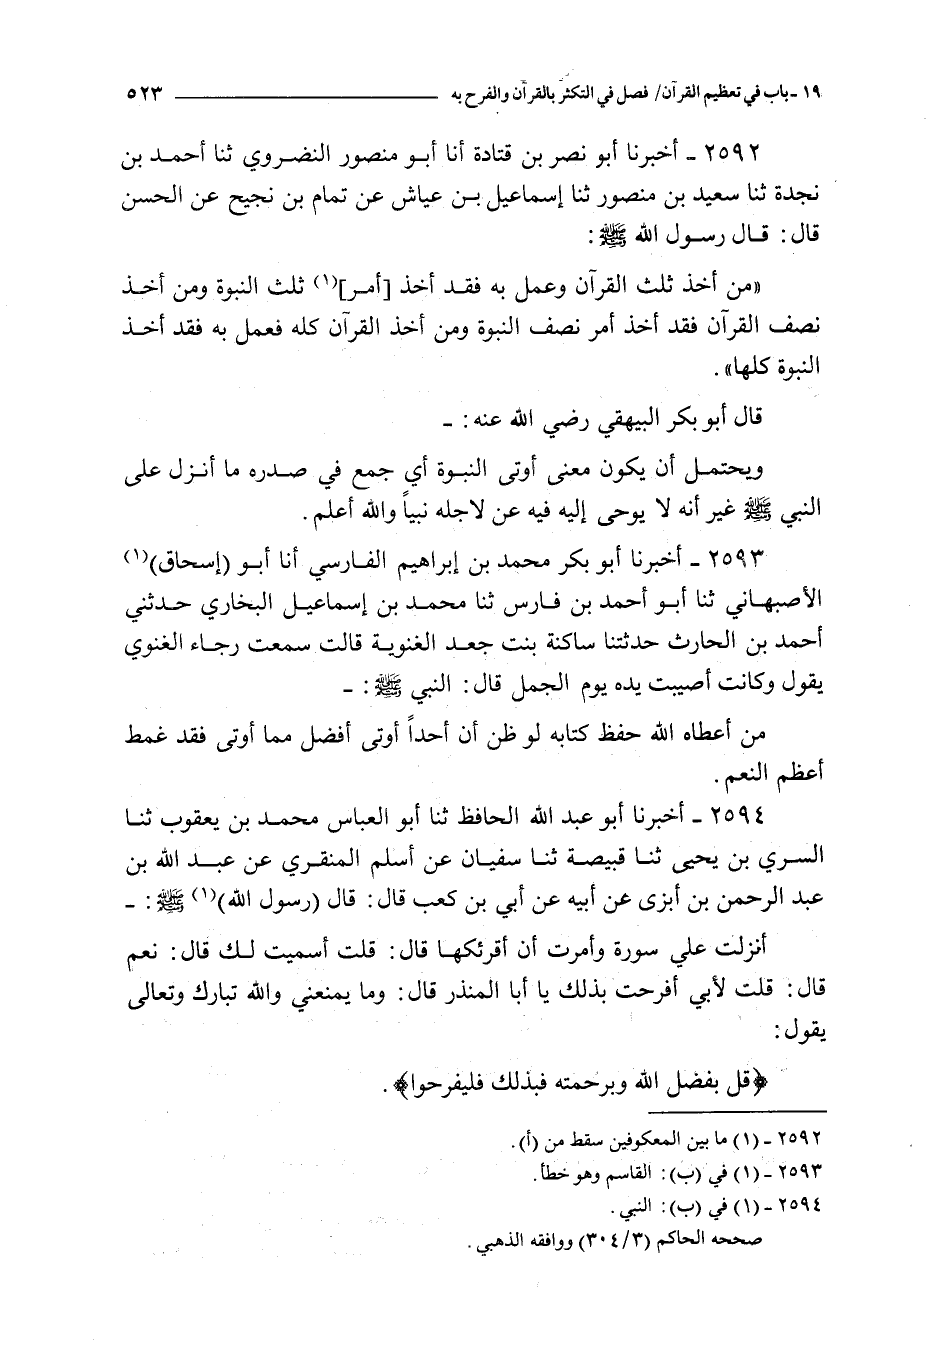 ١٩ - باب في تعظيم القرآن/ فصل في التكثر بالقرآن والفرح به ــــــــــ ٥٢٣
٢٥٩٢ ـ أخبرنا أبو نصر بن قتادة أنا أبو منصور النضروي ثنا أحمد بن
نجدة ثنا سعيد بن منصور ثنا إسماعيل بن عياش عن تمام بن نجيح عن الحسن
قال: قال رسول الله ﷺ:
«من أخذ ثلث القرآن وعمل به فقد أخذ [أمر](١) ثلث النبوة ومن أخذ
نصف القرآن فقد أخذ أمر نصف النبوة ومن أخذ القرآن كله فعمل به فقد أخذ
النبوة كلها».
قال أبو بكر البيهقي رضي الله عنه: ـ
ويحتمل أن يكون معنى أوتى النبوة أي جمع في صدره ما أنزل على
النبي ﷺ غير أنه لا يوحى إليه فيه عن لاجله نبياً والله أعلم.
٢٥٩٣ ـ أخبرنا أبو بكر محمد بن إبراهيم الفارسي أنا أبو (إسحاق)(١)
الأصبهاني ثنا أبو أحمد بن فارس ثنا محمد بن إسماعيل البخاري حدثني
أحمد بن الحارث حدثتنا ساكنة بنت جعد الغنوية قالت سمعت رجاء الغنوي
يقول وكانت أصيبت يده يوم الجمل قال: النبي ﷺ: ـ
من أعطاه الله حفظ كتابه لو ظن أن أحداً أوتى أفضل مما أوتى فقد غمط
أعظم النعم.
٢٥٩٤ ـ أخبرنا أبو عبد الله الحافظ ثنا أبو العباس محمد بن يعقوب ثنا
السري بن يحيى ثنا قبيصة ثنا سفيان عن أسلم المنقري عن عبد الله بن
عبد الرحمن بن أبزى عن أبيه عن أبي بن كعب قال: قال (رسول الله)(١) ﷺ: ـ
أنزلت علي سورة وأمرت أن أقرئكها قال: قلت أسميت لك قال: نعم
قال: قلت لأبي أفرحت بذلك يا أبا المنذر قال: وما يمنعني والله تبارك وتعالى
يقول:
﴿قل بفضل الله وبرحمته فبذلك فليفرحوا﴾.
٢٥٩٢ ـ (١) ما بين المعكوفين سقط من (أ).
٢٥٩٣ ـ (١) في (ب): القاسم وهو خطأ.
٢٥٩٤ ـ (١) في (ب): النبي.
صححه الحاكم (٣٠٤/٣) ووافقه الذهبي.